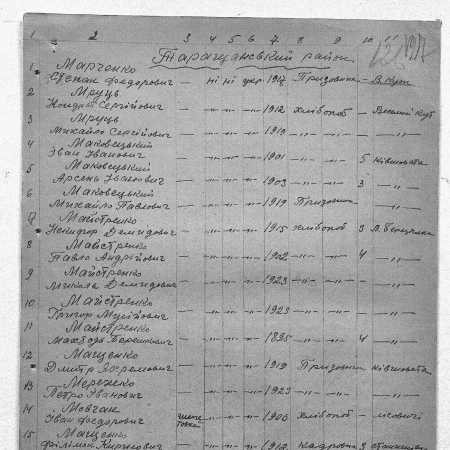 1 2 3 4 5 6 7 8 9 10 11
Таращанський район
1 Марченко
Степан Федорович – ні ні укр 1917 Призовник –
2 Мруць
Кондрат Сергійович – –„– –„– –„– 1912 хлібороб – Веселий Кут
3 Мруць
Михайло Сергійович – –„– –„– –„– 1919 –„– –„–
4 Маковецький
Іван Іванович – –„– –„– –„– 1901 –„– 5 Ківшовата
5 Маковецький
Арсень Іванович – –„– –„– –„– 1903 –„– 3 –„–
6 Маковецький
Михайло Павлович – –„– –„– –„– 1919 Призовник –„–
7 Майстренко
Никифор Демидович – –„– –„– –„– 1915 хлібороб 3 В. Березянка
8 Майстренко
Павло Андрійович – –„– –„– –„– 1902 –„– 4 –„–
9 Майстренко
Микола Демидович – –„– –„– –„– 1923 –„– – –„–
10 Майстренко
Григор Мусійович – –„– –„– –„– 1923 –„– – –„–
11 Майстренко
–„– –„– –„– 1895 –„– 4 –„–
12 Маценко
Дмитр Яхремович – –„– –„– –„– 1919 Призовник Ківшовата
13 Мережко
Петро Іванович – –„– –„– –„– 1923 –„– – –„–
14 Мовчан
Іван Федорович –„– –„– –„– 1906 хлібороб – лісовичі
15 Маценко
Філімон –„– –„– –„– 3